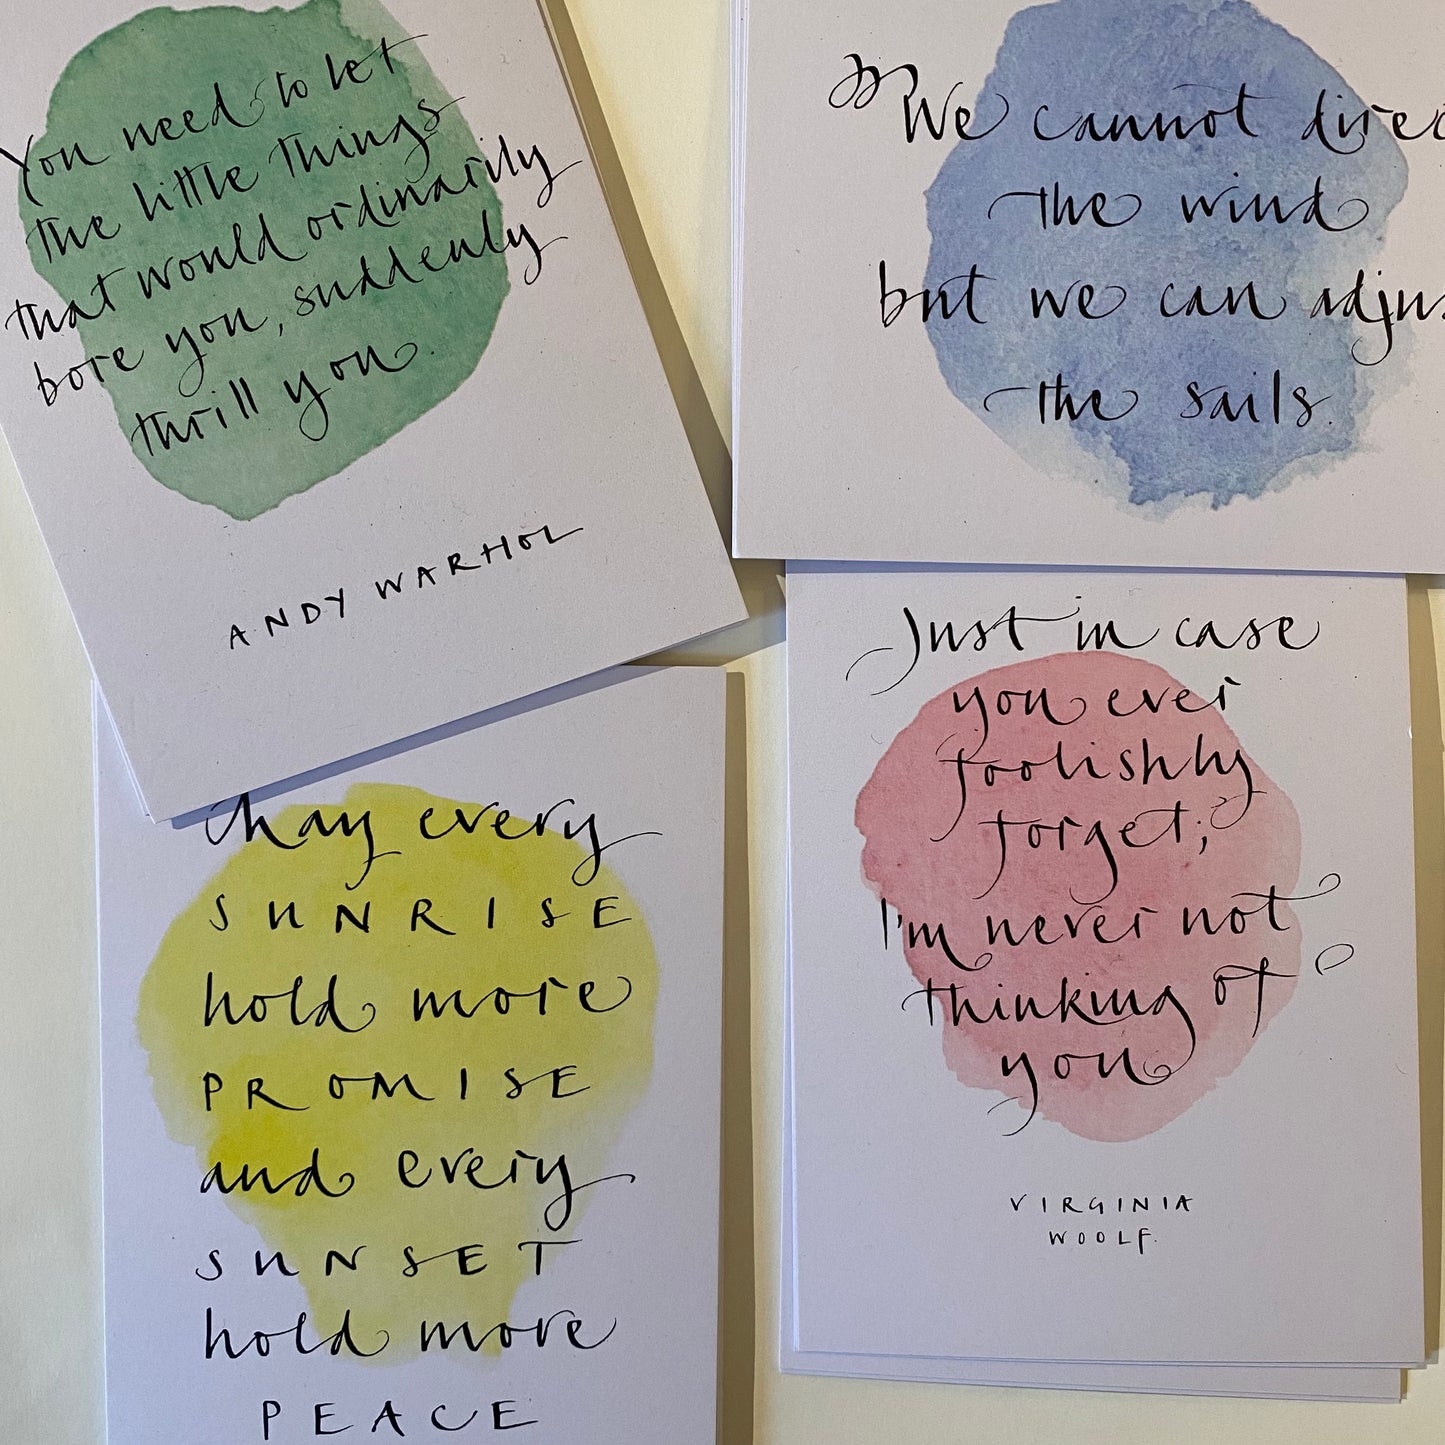 You need to let
the little things
that would ordinarily
bore you, suddenly
thrill you.
ANDY WARHOL
"We cannot direc
the wind
but we can adjus
the sails.
May every
SUNRISE
hold more
PROMISE
and every
SUNSET
hold more
PEACE
Just in case
you ever
foolishly
forget;
I'm never not
thinking of
you
VIRGINIA
WOOLF.